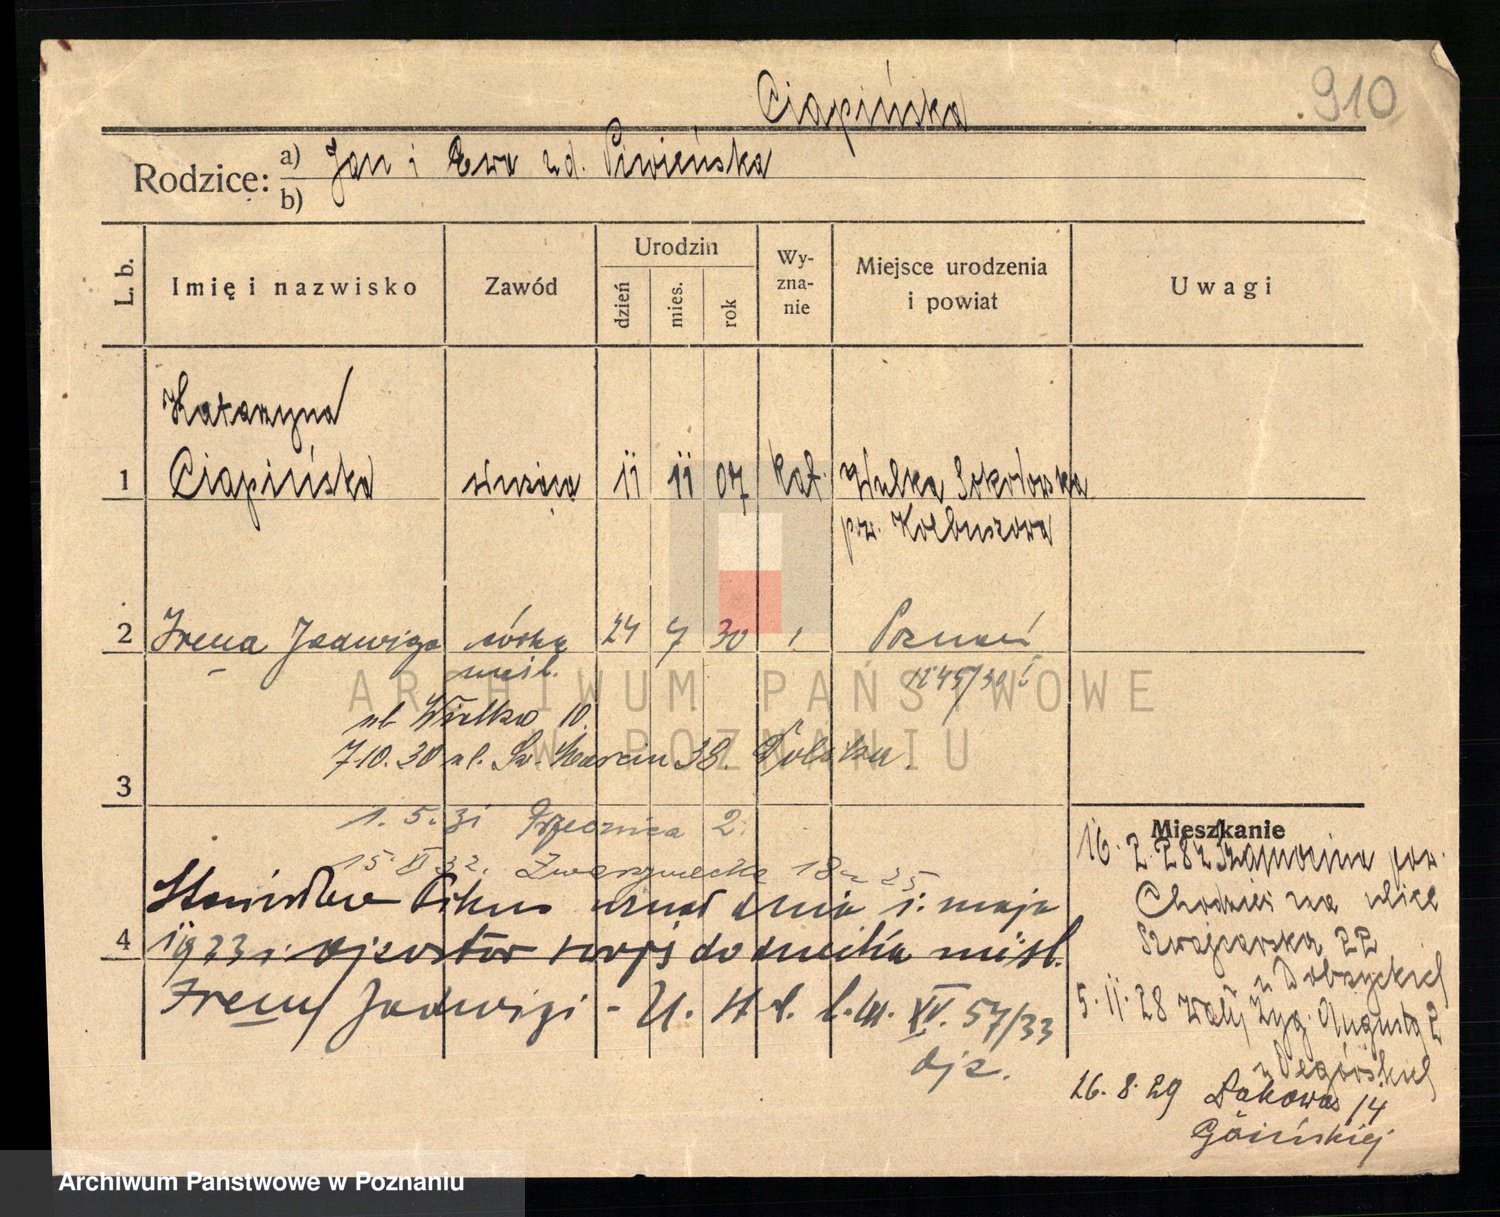 Ciapińska
910
Rodzice: a) Jan i Ewa zd. Piwieńska
b)
L. b.
Imię i nazwisko
Zawód
Urodzin
dzień
mies.
rok
Wy-
zna-
nie
Miejsce urodzenia
i powiat
Uwagi
Katarzyna
1 Ciapińska służąca 11 11 07 kat. Wulka Sokołowska
pow. Kolbuszowa
2 Irena Jadwiga córka 24 7 30 Poznań
nieśl. 1245/30
ul. Wielka 10
7.10.30 ul. Św. Marcin 38.
3
1.5.31 2.
15 XI 32. Zwierzyniecka 18
Stanisław uznał dnia 1. maja
4 1933 r. ojcostwo swojś do dziecka nieśl.
Ireny Jadwigi - U. St. XV. 57/33
ojz.
Mieszkanie
16. 2. 28 z Szamocina pow.
Chodzież na ulicę
Szwajcarską 22
u Dobrzyckich
5.11.28 Wały Zyg. Augusta 2
26.8.29 Łąkowa 14
ARCHIWUM PAŃSTWOWE
W POZNANIU
Archiwum Państwowe w Poznaniu